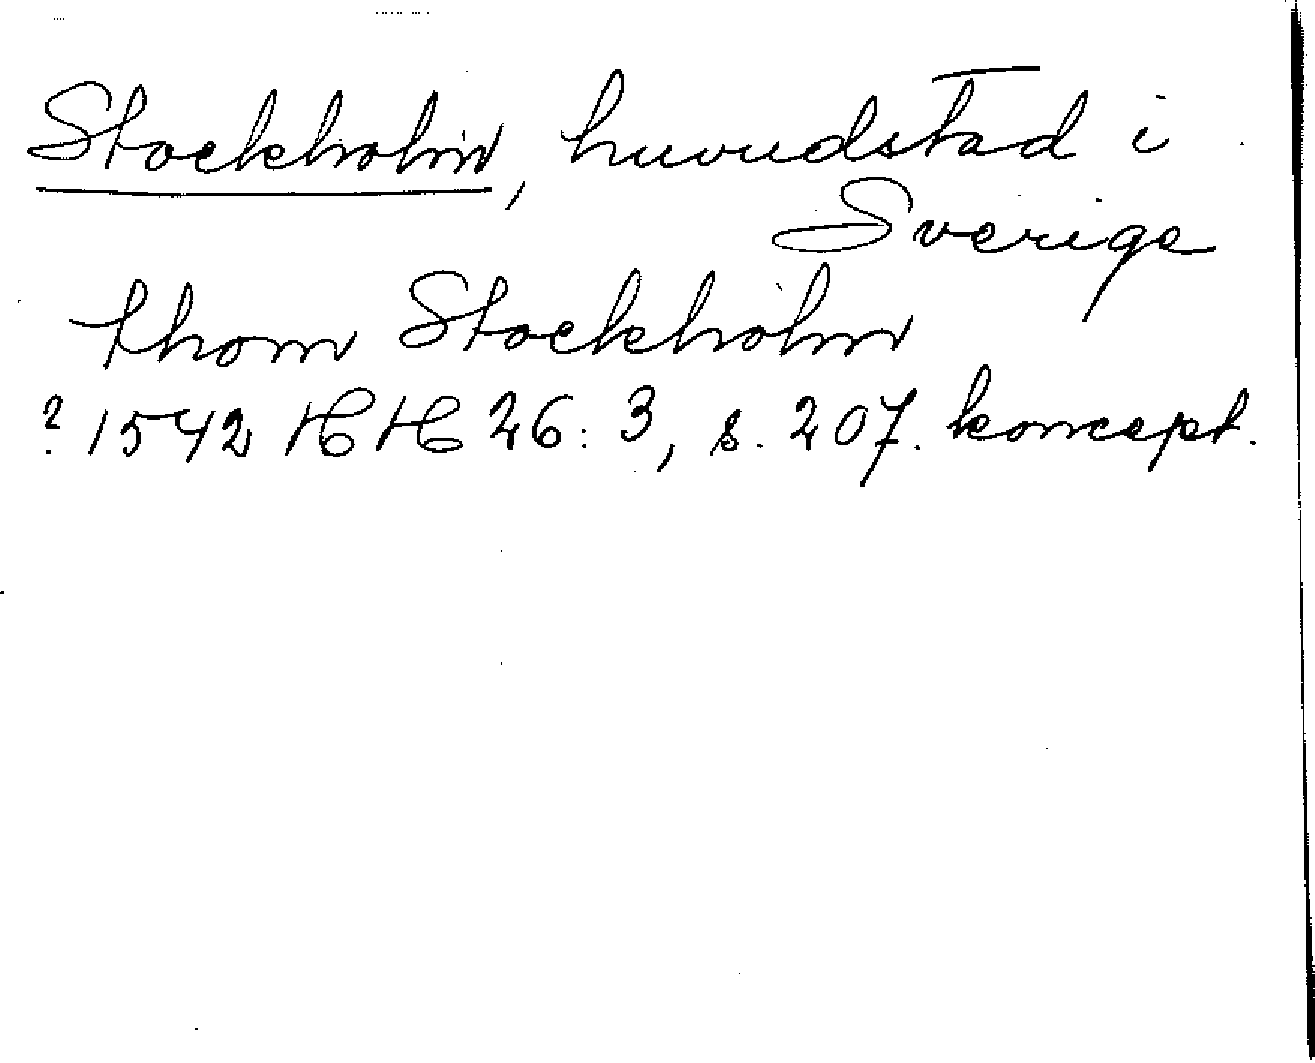 Stockholm, huvudstad i
Sverige
thom Stockholm
? 1542 HH 26:3, s. 207. koncept.